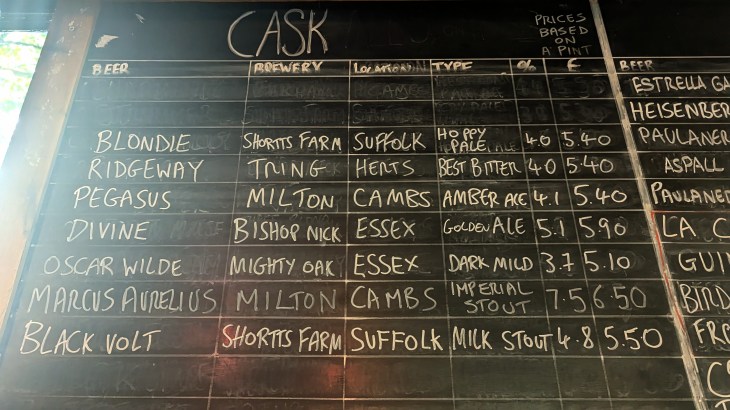 CASK
PRICES
BASED
ON
A PINT
BEER BREWERY LOCATION TYPE % £ BEER
ESTRELLA
HEISENBER
BLONDIE SHORTTS FARM SUFFOLK HOPPY PALE 4.0 5.40 PAULANER
RIDGEWAY TRING HERTS BEST BITTER 4.0 5.40 ASPALL
PEGASUS MILTON CAMBS AMBER ALE 4.1 5.40 PAULANE
DIVINE BISHOP NICK ESSEX GOLDEN ALE 5.1 5.90 LA
OSCAR WILDE MIGHTY OAK ESSEX DARK MILD 3.7 5.10 GUI
MARCUS AURELIUS MILTON CAMBS IMPERIAL STOUT 7.5 6.50 BIRD
BLACK VOLT SHORTTS FARM SUFFOLK MILK STOUT 4.8 5.50 FRO